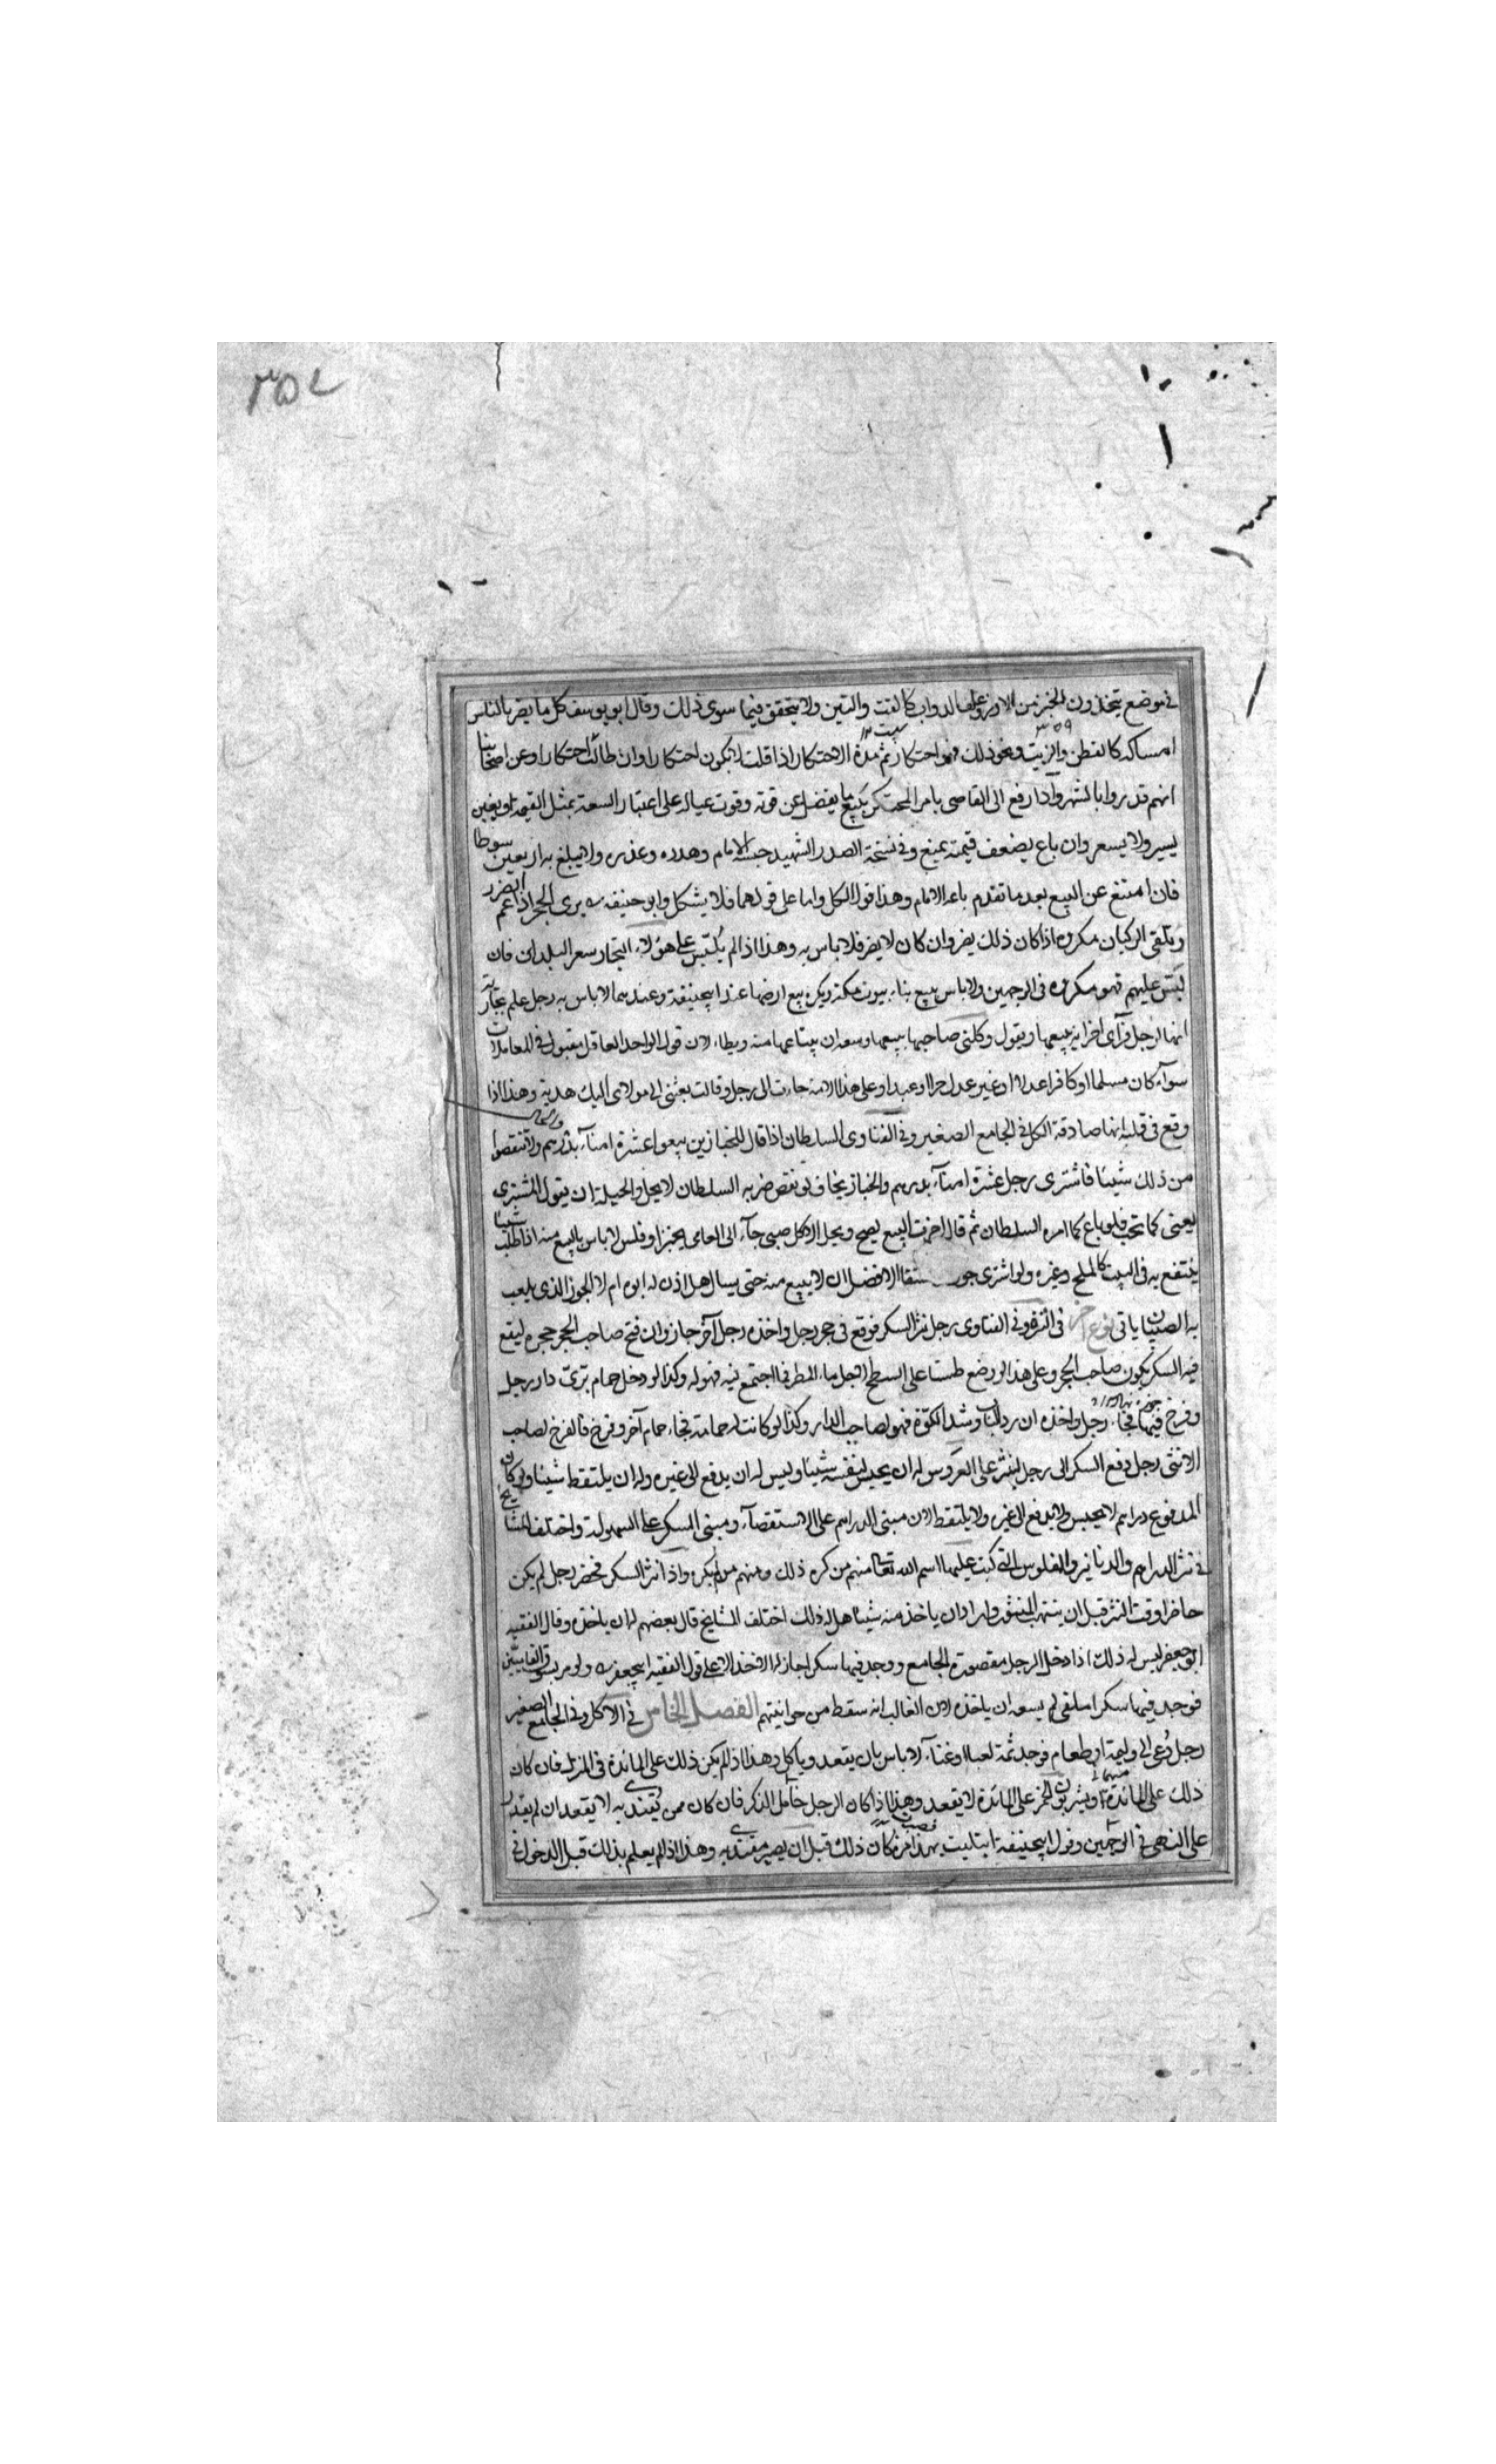 ٣٥٤
في موضع يتخذون الخبز من الارز وعلف الدواب كالقت والتبن ولا يتحقق فيما سوى ذلك وقال ابو يوسف كل ما يضر بالناس
امساكه كالقطن والزيت ونحو ذلك فهو احتكار ثم مدة الاحتكار اذا قلت لا يكون احتكارا وان طالت احتكارا وعن اصحابنا
انهم قدروا بالشهر واذا رفع الى القاضى يامر المحتكر ببيع ما يفضل عن قوته وقوت عياله على اعتبار السعة بمثل القيمة او بغبن
يسير ولا يسعر وان باع بضعف قيمته يمنع وفي نسخة الصدر الشهيد حبسه الامام وهدده وعذره ولا يبلغ به اربعين سوطا
فان امتنع عن البيع بعد ما تقدم باعه الامام وهذا قول الكل واما على قولهما فلا يشكل وابو حنيفة يرى الحجر اذا عم الضرر
وتلقى الركبان مكروه اذا كان ذلك يضر وان كان لا يضر فلا باس به وهذا اذا لم يلبس على هؤلاء التجار سعر البلد اى فان
لبس عليهم فهو مكروه في الوجهين ولا باس ببيع بناء بيوت مكة ويكره بيع ارضها عند ابيحنيفة وعندهما لا باس به رجل علم بجارية
انها لرجل فرأى اخر يبيعها ويقول وكلنى صاحبها ببيعها وسعه ان يبتاعها منه ويطاء لان قول الواحد العاقل مقبول في المعاملات
سواء كان مسلما او كافرا عدلا او غير عدل حرا او عبدا وعلى هذا الامة جاءت الى رجل وقالت بعثنى مولاى اليك هدية وهذا اذا
وقع في قلبه انها صادقة الكل في الجامع الصغير وفي الفتاوى السلطان اذا قال للخبازين بيعوا عشرة امناء بدرهم ولا تنقصوا
من ذلك شيئا فاشترى رجل عشرة امناء بدرهم والخباز يخاف لو نقص ضربه السلطان لا يحل والحيلة ان يقول المشترى
بعنى كما تحب فلو باع كما امره السلطان ثم قال اجزت البيع يصح ويحل الاكل صبى جاء الى العامى بخبز او فلس لا باس بالبيع منه اذا طلب شيئا
ينتفع به في البيت كالملح وغيره ولو اشترى الافضل ان لا يبيع منه حتى يسال هل اذن له ابوه ام لا الجوز الذى يلعب
به الصبيان ياتى نوع آخر في النثر وفي الفتاوى رجل نثر السكر فوقع في حجر رجل واخذه رجل آخر جاز وان فتح صاحب الحجر حجره ليقع
فيه السكر يكون صاحب الحجر وعلى هذا لو وضع طستا على السطح لاجل ماء المطر فما اجتمع فيه فهو له وكذا لو دخل حمام برى دار رجل
وفرخ فيها فجاء رجل واخذه ان رد الباب وشد الكوة فهو لصاحب الدار وكذا لو كانت له حمامة فجاء حمام آخر وفرخ فالفرخ لصاحب
الانثى رجل دفع السكر الى رجل لينثر على العروس له ان يحبس لنفسه شيئا وليس له ان يدفع الى غيره وله ان يلتقط شيئا ولو كان
المدفوع دراهم لا يحبس ولا يدفع الى غيره ولا يلتقط لان مبنى الدراهم على الاستقصاء ومبنى السكر على السهولة واختلف المشايخ
في نثر الدراهم والدنانير والفلوس التى كتبت عليها اسم الله تعالى منهم من كره ذلك ومنهم من لم يكره واذا نثر السكر فحضر رجل لم يكن
حاضرا وقت النثر قبل ان ينتهب المنثور واراد ان ياخذ منه شيئا هل له ذلك اختلف المشايخ قال بعضهم له ان ياخذه وقال الفقيه
ابو جعفر ليس له ذلك اذا دخل الرجل مقصورة الجامع ووجد فيها سكرا جاز له الاخذ الا على قول الفقيه ابيجعفر ولو مر بسوق الفانيين
فوجد فيها سكرا ملقى لم يسعه ان ياخذه لان الغالب انه سقط من حوانيتهم الفصل الخامس في الاكل وفي الجامع الصغير
رجل دعى الى وليمة او طعام فوجد ثمة لعبا او غناء لا باس بان يقعد وياكل وهذا اذا لم يكن ذلك على المائدة في المنزل فان كان
ذلك على المائدة او يشربون الخمر على المائدة لا يقعد وهذا اذا كان الرجل خامل الذكر فان كان ممن يقتدى به لا يقعد ان لم يقدر
على النهى في الوجهين وقول ابيحنيفة ابتليت بهذا مرة كان ذلك قبل ان يصير مقتدى به وهذا اذا لم يعلم بذلك قبل الدخول في